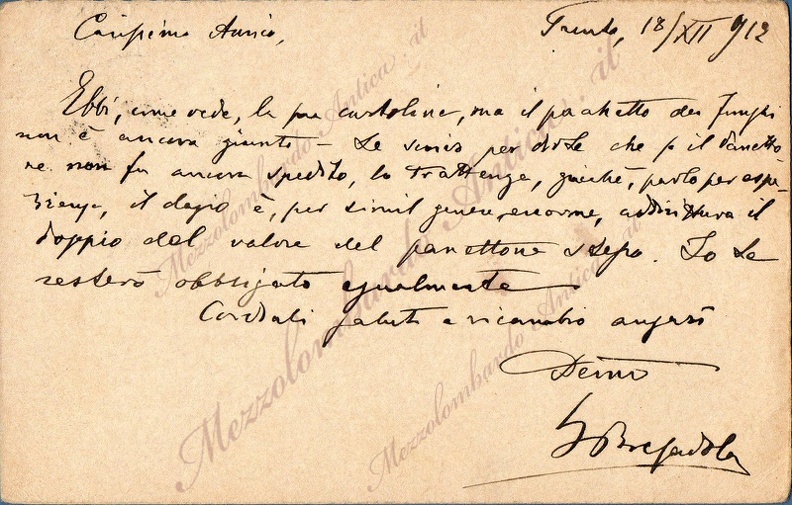 Carissimo Amico, Trento, 18/XII 912
Ebbi, come vede, la sua cartolina, ma il pachetto dei funghi
non è ancora giunto – Le scrivo per dirLe che se il panetto-
ne non fu ancora spedito, lo trattenga, giacchè, parlo per espe-
rienza, il dazio è, per simil genere, enorme, addirittura il
doppio del valore del panettone stesso. Io Le
resterò obbligato egualmente
Cordiali saluti e ricambio auguri
Devmo
GBresadola
Mezzolombardo Antica .it
Mezzolombardo Antica .it
Mezzolombardo Antica .it